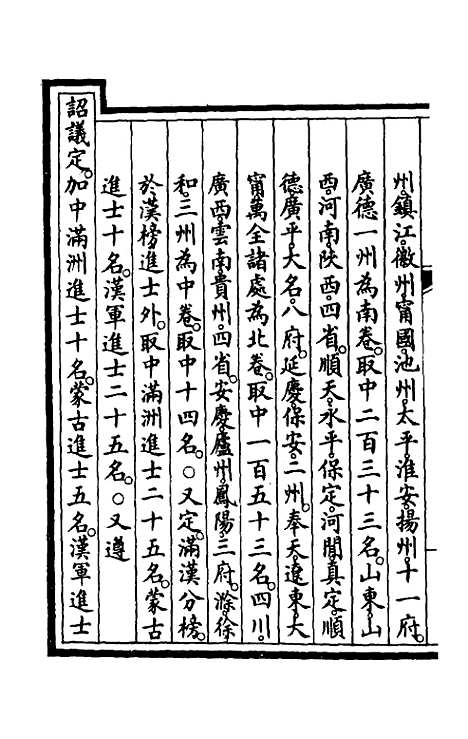 州鎮江。徽州。甯國。池州。太平。淮安。揚州。十一府。
廣德一州。為南卷。取中二百三十三名。山東。山
西。河南。陝西。四省。順天。永平。保定。河間。真定。順
德。廣平。大名。八府。延慶。保安。二州。奉天。遼東。大
甯。萬全諸處。為北卷。取中一百五十三名。四川。
廣西。雲南。貴州。四省。安慶。廬州。鳳陽。三府。滁。徐。
和。三州為中卷。取中十四名。○又定。滿漢分榜。
於漢榜進士外。取中滿洲進士二十五名。蒙古
進士十名。漢軍進士二十五名。○又遵
詔議定。加中滿洲進士十名。蒙古進士五名。漢軍進士